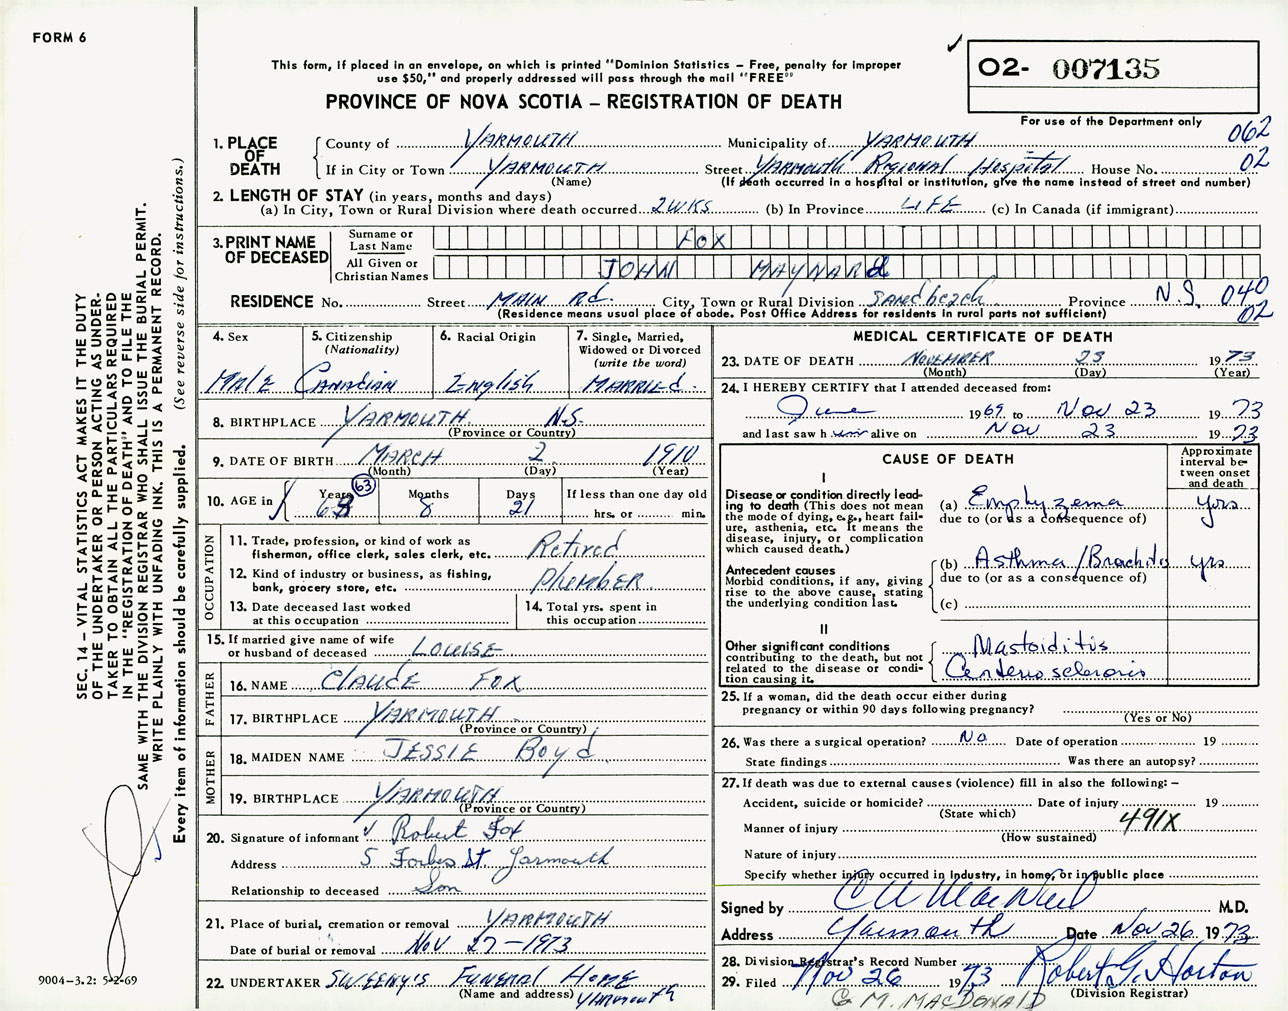 FORM 6
This form, if placed in an envelope, on which is printed "Dominion Statistics – Free, penalty for improper
use $50," and properly addressed will pass through the mail "FREE"
PROVINCE OF NOVA SCOTIA – REGISTRATION OF DEATH
O2- 007135
For use of the Department only
062
02
1. PLACE OF DEATH
County of YARMOUTH Municipality of YARMOUTH
If in City or Town YARMOUTH Street Yarmouth Regional Hospital House No.
(Name) (If death occurred in a hospital or institution, give the name instead of street and number)
2. LENGTH OF STAY (in years, months and days)
(a) In City, Town or Rural Division where death occurred 2 WKS (b) In Province LIFE (c) In Canada (if immigrant)
3. PRINT NAME OF DECEASED
Surname or Last Name FOX
All Given or Christian Names JOHN MAYNARd
RESIDENCE No. Street MAIN Rd. City, Town or Rural Division Sandbeach Province N.S. 040
02
(Residence means usual place of abode. Post Office Address for residents in rural parts not sufficient)
4. Sex
MALE
5. Citizenship
(Nationality)
CANAdIAN
6. Racial Origin
English
7. Single, Married,
Widowed or Divorced
(write the word)
MARRIEd.
8. BIRTHPLACE YARMOUTH N.S.
(Province or Country)
9. DATE OF BIRTH MARCH 2 1910
(Month) (Day) (Year)
10. AGE in
Years 63
Months 8
Days 21
If less than one day old
hrs. or min.
OCCUPATION
11. Trade, profession, or kind of work as
fisherman, office clerk, sales clerk, etc. Retired
12. Kind of industry or business, as fishing,
bank, grocery store, etc. Plumber
13. Date deceased last worked
at this occupation
14. Total yrs. spent in
this occupation
15. If married give name of wife
or husband of deceased LOUISE
FATHER
16. NAME CLAUDE FOX
17. BIRTHPLACE YARMOUTH
(Province or Country)
MOTHER
18. MAIDEN NAME JESSIE Boyd
19. BIRTHPLACE YARMOUTH
(Province or Country)
20. Signature of informant Robert Fox
Address 5 Forbes St. Yarmouth
Relationship to deceased Son
21. Place of burial, cremation or removal YARMOUTH
Date of burial or removal Nov 27-1973
22. UNDERTAKER SWEENY'S FUNERAL HOME
(Name and address) YARMOUTH
MEDICAL CERTIFICATE OF DEATH
23. DATE OF DEATH NOVEMBER 23 1973
(Month) (Day) (Year)
24. I HEREBY CERTIFY that I attended deceased from:
June 1969 to Nov 23 1973
and last saw h im alive on Nov 23 1973
CAUSE OF DEATH
Approximate
interval be-
tween onset
and death
I
Disease or condition directly lead-
ing to death (This does not mean
the mode of dying, e.g., heart fail-
ure, asthenia, etc. It means the
disease, injury, or complication
which caused death.)
(a) Emphyzema yrs
due to (or as a consequence of)
Antecedent causes
Morbid conditions, if any, giving
rise to the above cause, stating
the underlying condition last.
(b) Asthma/Brochitis yrs
due to (or as a consequence of)
(c)
II
Other significant conditions
contributing to the death, but not
related to the disease or condi-
tion causing it.
Mastoiditis
25. If a woman, did the death occur either during
pregnancy or within 90 days following pregnancy?
(Yes or No)
26. Was there a surgical operation? No Date of operation 19
State findings Was there an autopsy?
27. If death was due to external causes (violence) fill in also the following: –
Accident, suicide or homicide? Date of injury 19
(State which)
Manner of injury 491X
(How sustained)
Nature of injury
Specify whether injury occurred in industry, in home, or in public place
Signed by C A MacNeil M.D.
Address Yarmouth Date Nov 26 1973
28. Division Registrar's Record Number
29. Filed Nov 26 1973 Robert G. Horton
(Division Registrar)
M. MACDONALD
SEC. 14 – VITAL STATISTICS ACT MAKES IT THE DUTY
OF THE UNDERTAKER OR PERSON ACTING AS UNDER-
TAKER TO OBTAIN ALL THE PARTICULARS REQUIRED
IN THE "REGISTRATION OF DEATH" AND TO FILE THE
SAME WITH THE DIVISION REGISTRAR WHO SHALL ISSUE THE BURIAL PERMIT.
WRITE PLAINLY WITH UNFADING INK. THIS IS A PERMANENT RECORD.
Every item of information should be carefully supplied. (See reverse side for instructions.)
9004-3.2: 5-2-69